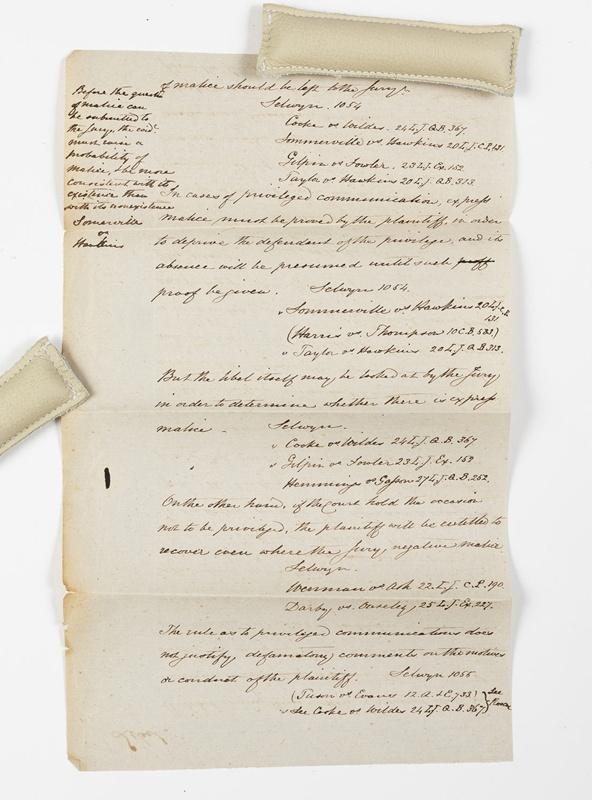 of malice should be left to the Jury.
Selwyn. 1054
Cooke vs Wildes. 24 L.J. Q.B. 367
Sommerville vs Hawkins 20 L.J. C.P. 131
Gilpin vs Fowler. 23 L.J. Ex. 152
Taylor vs Hawkins 20 L.J. Q.B. 313
Before the questn
of malice can
be submitted to
the Jury, the evidce
must raise a
probability of
malice, & be more
consistent with its
existence than
with its nonexistence
Somerville
vs
Hawkins
In cases of privileged communication, express
malice must be proved by the plaintiff, in order
to deprive the defendant of the privilege, and its
absence will be presumed until such proff
proof be given. Selwyn 1054.
" Sommerville vs Hawkins 20 L.J. C.P.
131
(Harris vs. Thompson 10 C.B. 333)
" Taylor vs Hawkins 20 L.J. Q.B. 313.
But the libel itself may, be looked at by the Jury,
in order to determine whether there is express
malice - Selwyn.
" Cooke vs Wildes 24 L.J. Q.B. 367
" Gilpin vs Fowler 23 L.J. Ex. 153
Hemmings vs Gasson 27 L.J. Q.B. 252.
On the other hand, if the Court hold the occasion
not to be privileged, the plaintiff will be entitled to
recover even where the Jury, negative malice
Selwyn.
Wenman vs Ash 22. L.J. C.P. 190.
Darby vs. Ouseley, 25 L.J. Ex. 227.
The rule as to privileged communications does
not justify, defamatory comments on the motives
or conduct of the plaintiff. Selwyn 1055
(Tuson vs Evans 12 A. & E. 733) See
" See Cooke vs Wildes 24 L.J. Q.B. 367